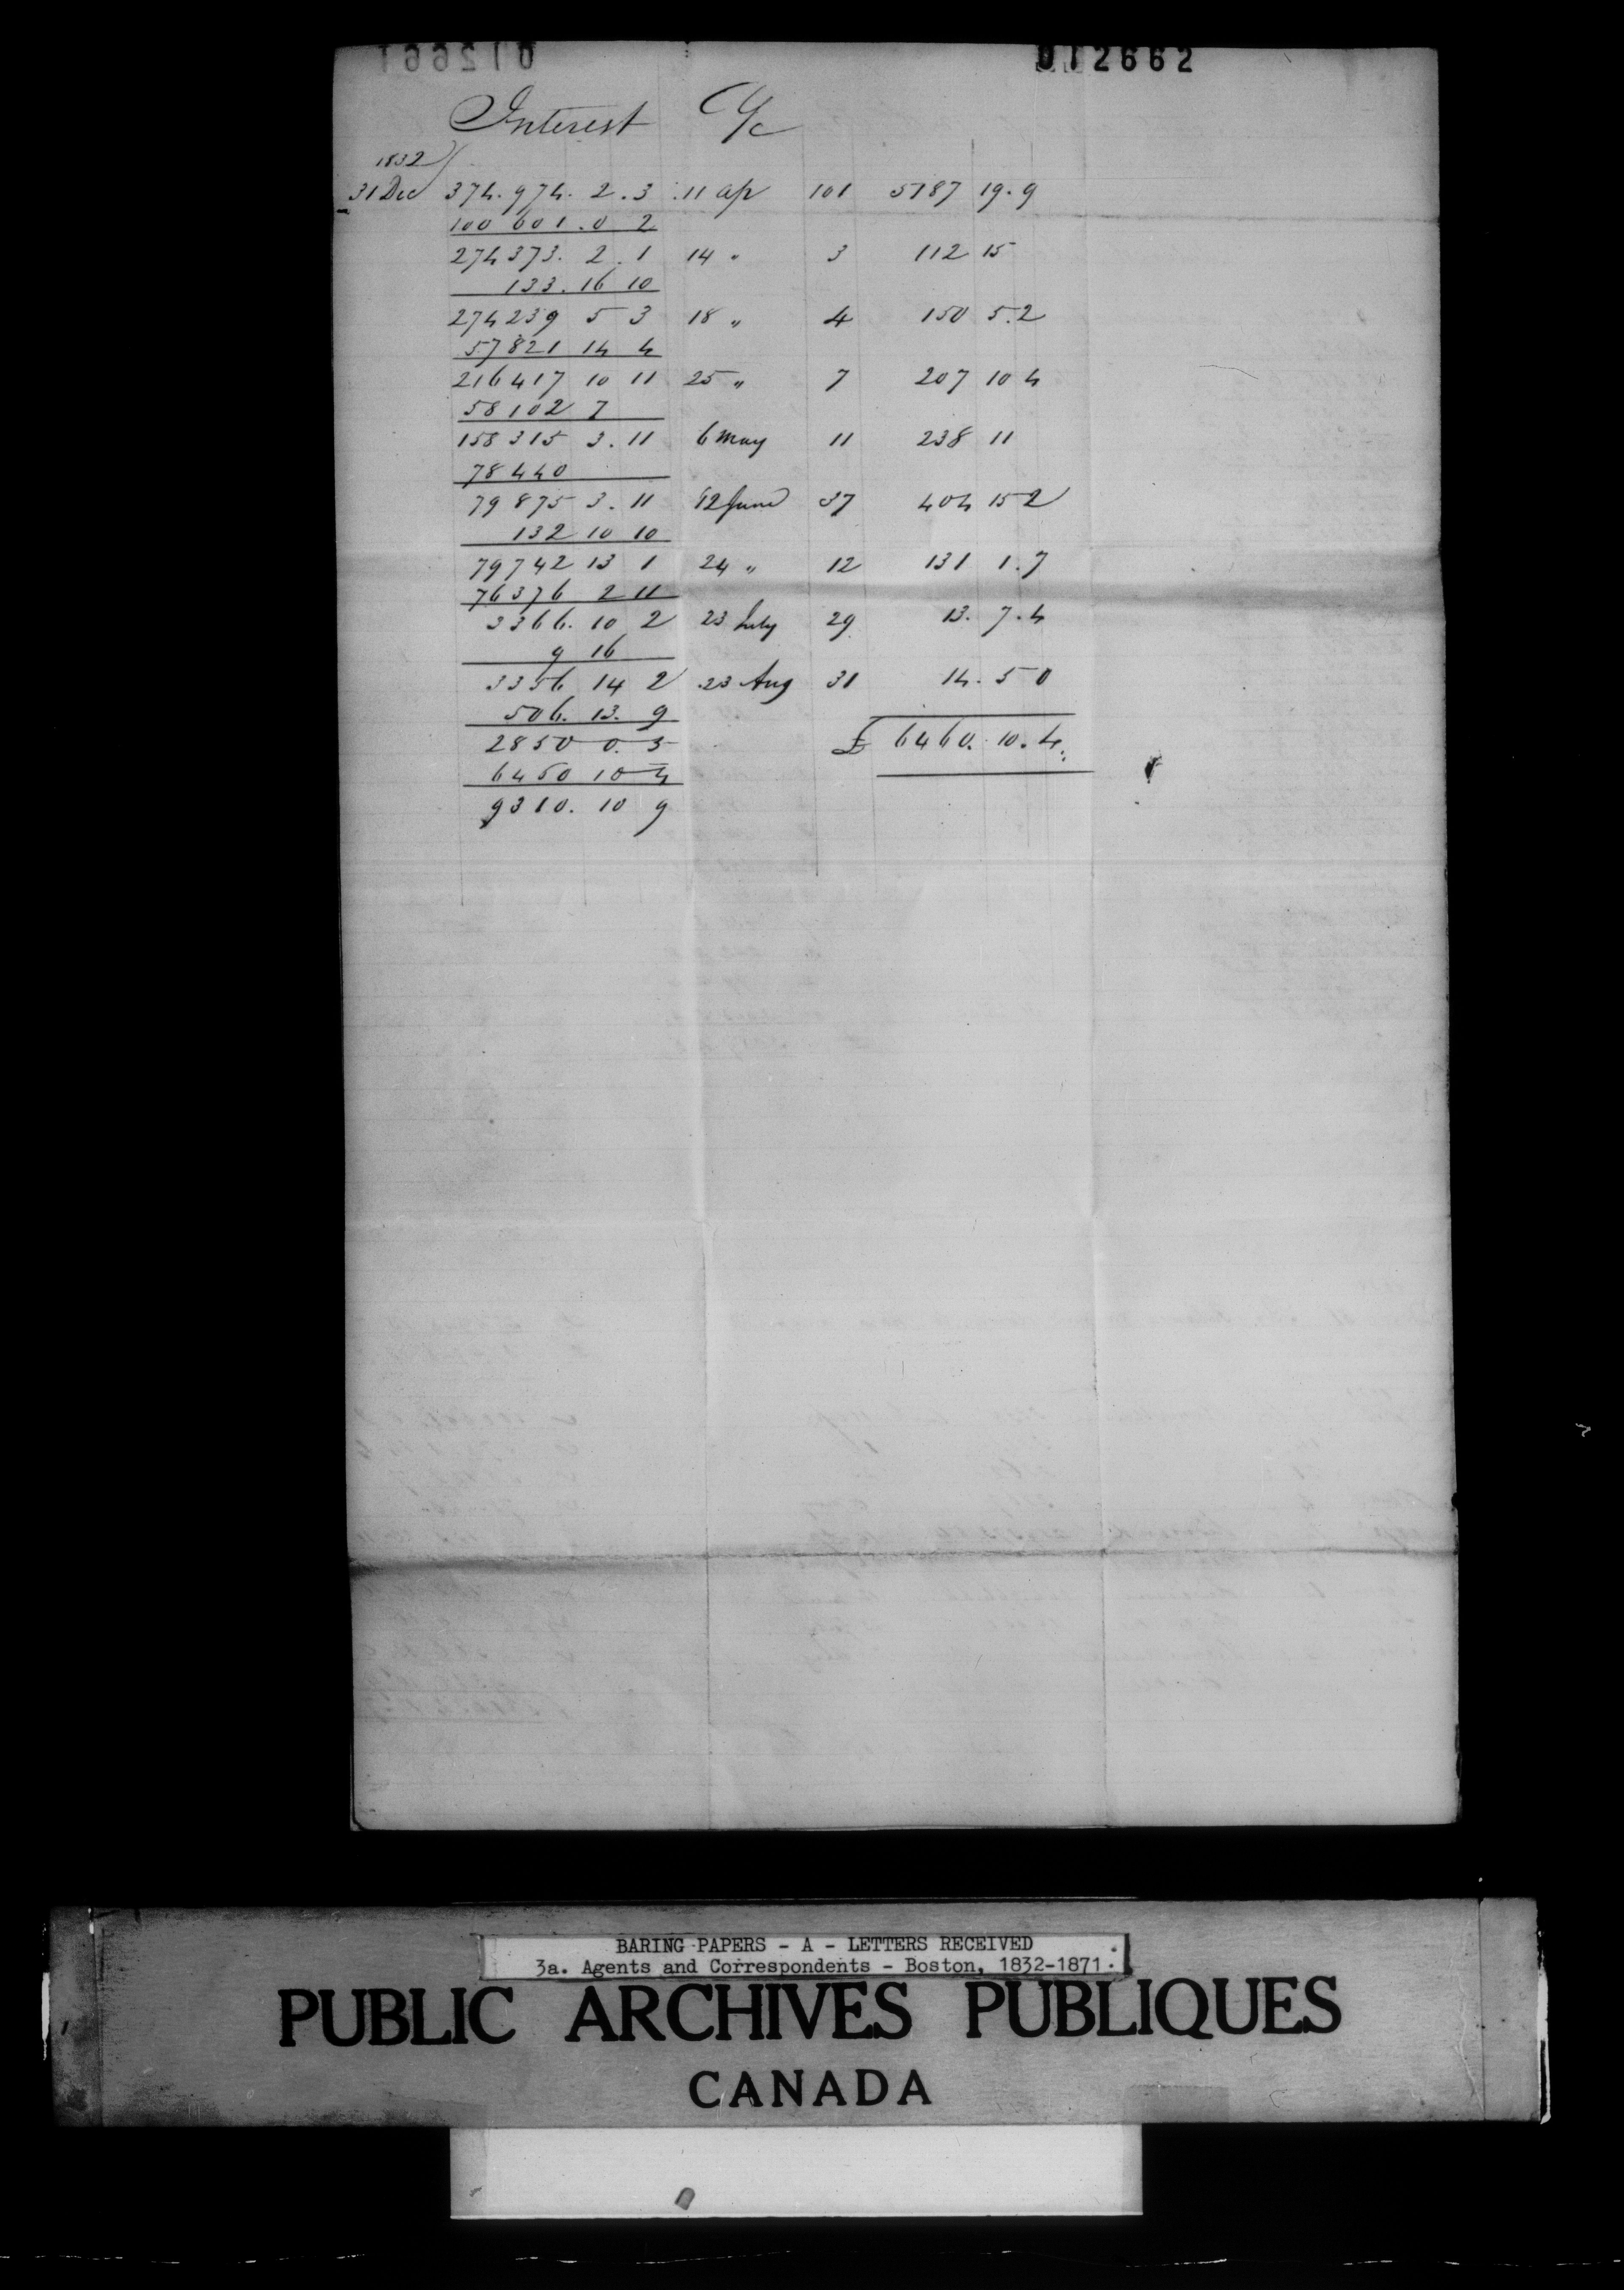 012661 012662
Interest a/c
1832
31 Dec 374.974. 2. 3 11 ap 101 5187 19. 9
100 601. 0 2
274373. 2. 1 14 " 3 112 15
133. 16 10
274239 5 3 18 " 4 150 5. 2
57821 14 4
216417 10 11 25 " 7 207 10 4
58102 7
158315 3. 11 6 May 11 238 11
78440
79875 3. 11 12 June 37 404 15 2
132 10 10
79742 13 1 24 " 12 131 1. 7
76376 2 11
3366. 10 2 23 July 29 13. 7. 4
9 16
3356 14 2 23 Aug 31 14. 5 0
506. 13. 9
2850 0. 5 £ 6460. 10. 4
6460 10 4
9310. 10 9
BARING PAPERS - A - LETTERS RECEIVED
3a. Agents and Correspondents - Boston, 1832-1871.
PUBLIC ARCHIVES PUBLIQUES
CANADA